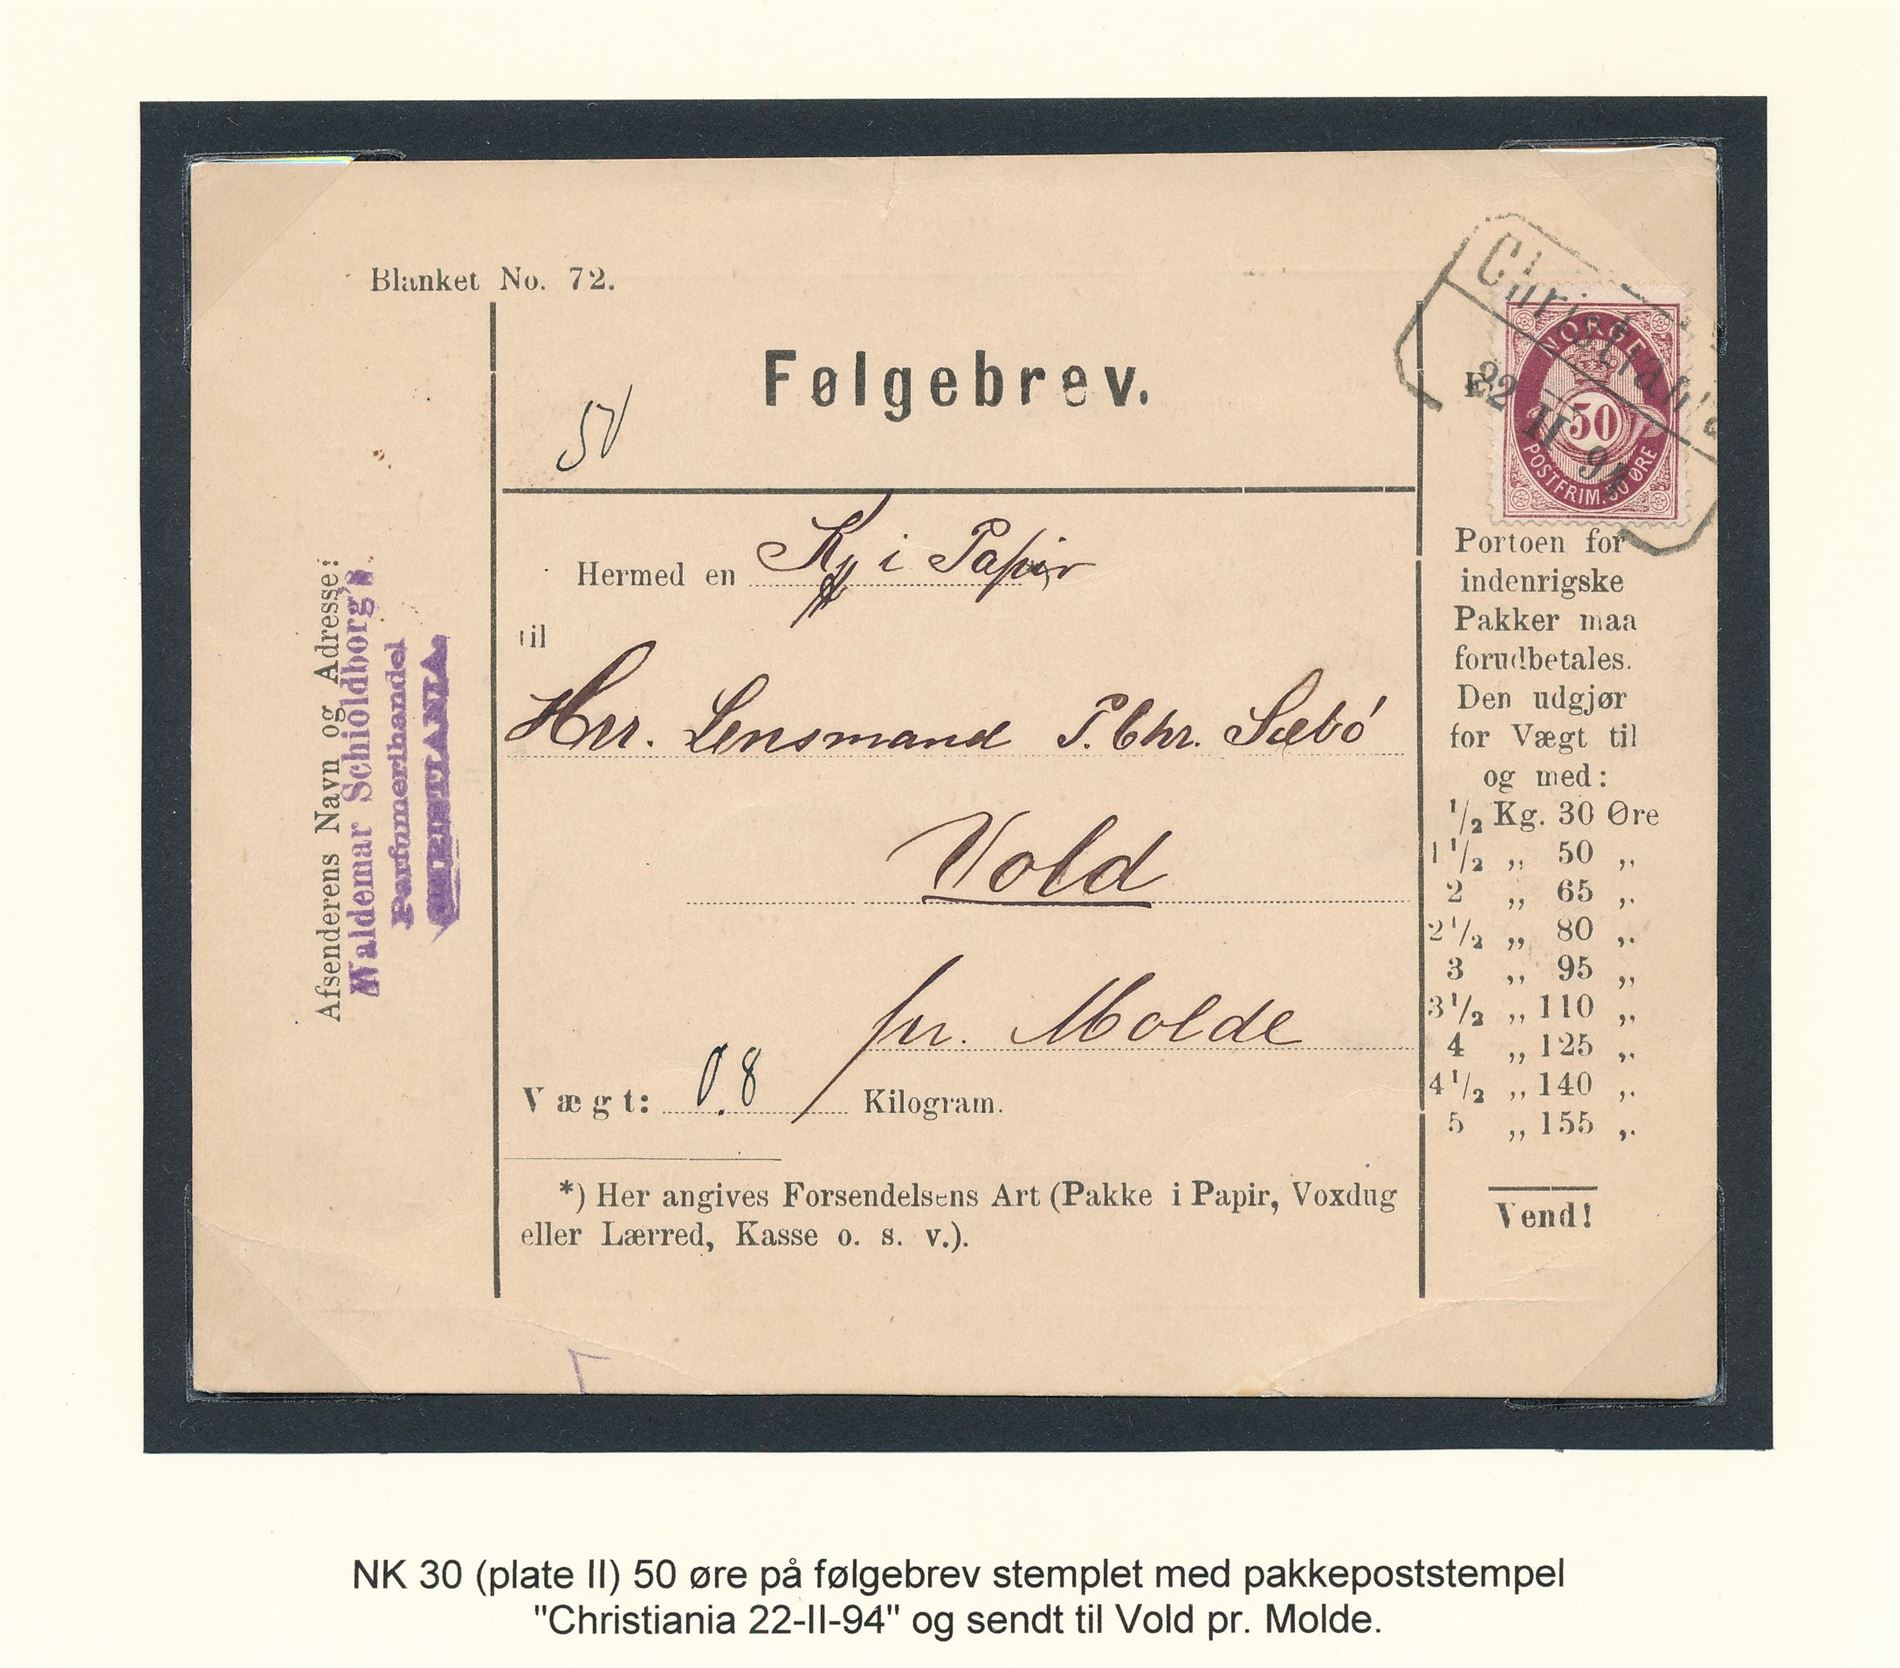 Blanket No. 72.
Følgebrev.
50
Afsenderens Navn og Adresse:
Waldemar Schioldborg's
Parfumerihandel
CHRISTIANIA
Hermed en i Papir
til
Hrr. Lensmand P. Chr. Sæbö
Vold
pr. Molde
Vægt: 0.8 Kilogram.
*) Her angives Forsendelsens Art (Pakke i Papir, Voxdug
eller Lærred, Kasse o. s. v.).
Christiania
22 II 94
NORGE
50
POSTFRIM. 50 ØRE
Portoen for
indenrigske
Pakker maa
forudbetales.
Den udgjør
for Vægt til
og med:
1/2 Kg. 30 Øre
1 1/2 „ 50 „
2 „ 65 „
2 1/2 „ 80 „
3 „ 95 „
3 1/2 „ 110 „
4 „ 125 „
4 1/2 „ 140 „
5 „ 155 „
Vend!
NK 30 (plate II) 50 øre på følgebrev stemplet med pakkepoststempel
"Christiania 22-II-94" og sendt til Vold pr. Molde.